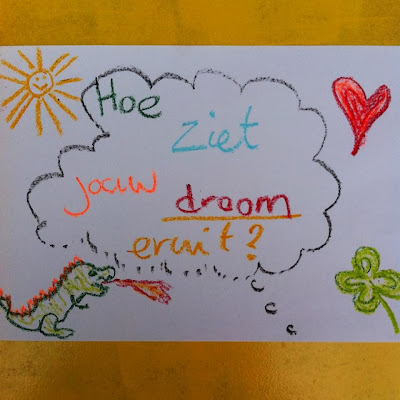 Hoe
ziet
jouw droom
eruit?